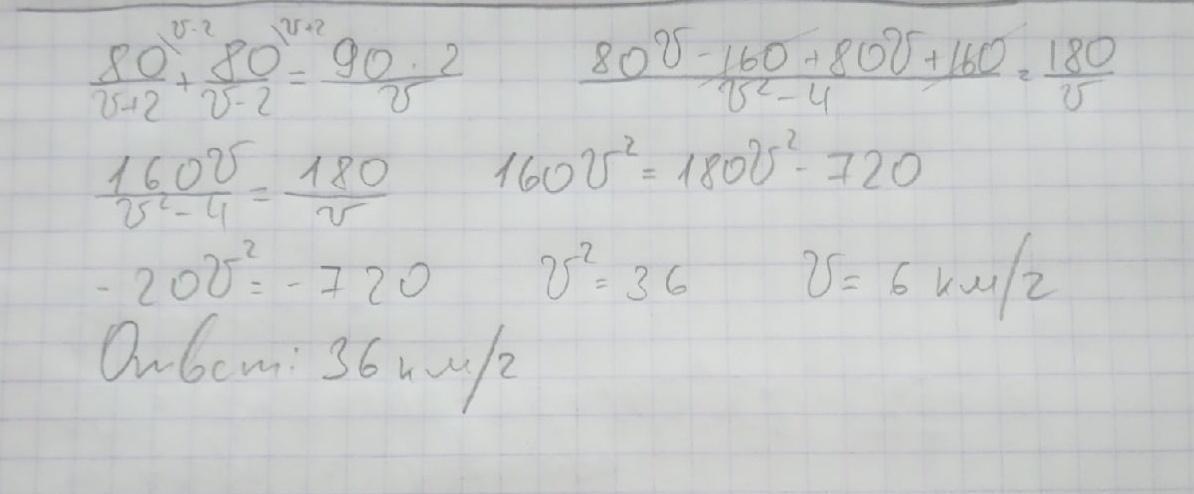 80\v-2/(v+2) + 80\v+2/(v-2) = 90·2/v (80v-160+80v+160)/(v²-4) = 180/v
160v/(v²-4) = 180/v 160v² = 180v² - 720
-20v² = -720 v² = 36 v = 6 км/г
Ответ: 36 км/г